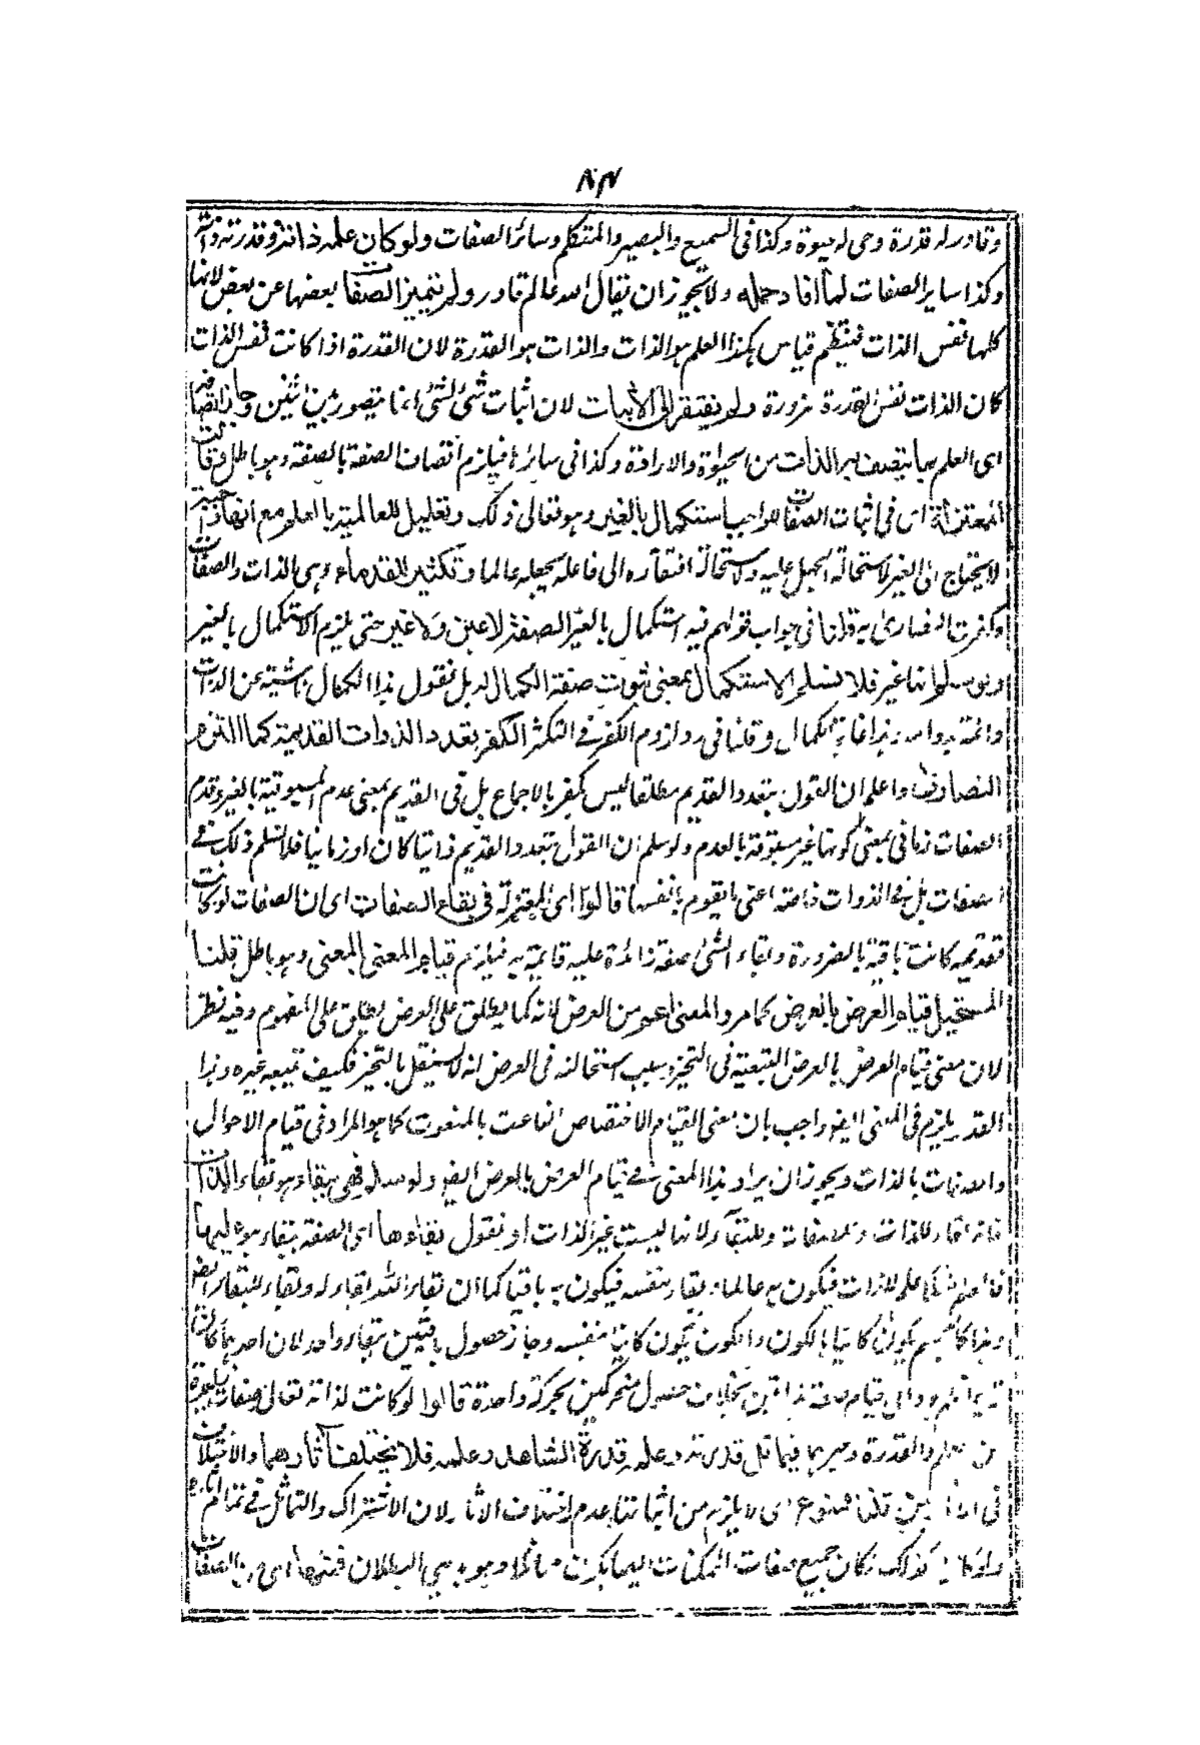 ٨٣
وقادر له قدرة وحى له حيوة وكذا فى السميع والبصير والمتكلم وسائر الصفات ولو كان علمه ذاته وقدرته ذاته
وكذا سائر الصفات لما افاد حمله ولا يجوز ان يقال الله عالم قادر ولم يتميز الصفات بعضها عن بعض لانها
كلها نفس الذات فينتظم قياس هكذا العلم هو الذات والذات هو القدرة لان القدرة اذا كانت نفس الذات
كان الذات نفس القدرة ضرورة ولم يفتقر الى الاثبات لان اثبات شئ لشئ انما يتصور بين اثنين وجاز اتصافه
اى العلم بما يتصف به الذات من الحيوة والارادة وكذا فى سائره فيلزم اتصاف الصفة بالصفة وهو باطل وقالت
المعتزلة اى فى اثبات الصفات للواجب استكمال بالغير وهو تعالى ذلك وتعليل للعالمية بالعلم مع انها
لا يحتاج الى الغير لاستحالة الجهل عليه ولاستحالة افتقاره الى فاعل يجعله عالما وتكثير للقدماء وهى الذات والصفات
وكفرت النصارى به قلنا فى جواب قولهم فيه استكمال بالغير الصفة لا عين ولا غير حتى يلزم الاستكمال بالغير
ولو سلم انها غير فلا نسلم الاستكمال بمعنى ثبوت صفة الكمال له بل نقول هذا الكمال ناشية عن الذات
دائمة بدوامه وهذا غاية الكمال وقلنا فى رد لزوم الكفر فى التكثر الكفر بتعدد الذوات القديمة كما التزم
النصارى واعلم ان القول بتعدد القديم مطلقا ليس بكفر بالاجماع بل فى القديم بمعنى عدم المسبوقية بالغير وقدم
الصفات زمانى بمعنى كونها غير مسبوقة بالعدم ولو سلم ان القول بتعدد القديم ذاتيا كان او زمانيا فلا نسلم ذلك فى
الصفات بل فى الذوات خاصة اعنى ما يقوم بانفسها قالوا اى المعتزلة فى بقاء الصفات اى ان الصفات لو كانت
قديمة كانت باقية بالضرورة وبقاء الشئ صفة زائدة عليه قائمة به فيلزم قيام المعنى بالمعنى وهو باطل قلنا
المستحيل قيام العرض بالعرض كما مر والمعنى اعم من العرض لانه كما يطلق على العرض يطلق على المفهوم وفيه نظر
لان معنى قيام العرض بالعرض التبعية فى التحيز وبسبب استحالته فى العرض انه لا يستقل بالتحيز فكيف يتبعه غيره وهذا
القدر يلزم فى المعنى ايضا واجب بان معنى القيام الاختصاص الناعت بالمنعوت كما هو المراد فى قيام الاحوال
والصفات بالذات ويجوز ان يراد بهذا المعنى فى قيام العرض بالعرض ايضا ولو سلم فهى ببقاء هو بقاء الذات
فانه بقاء للذات وللصفات وللبقاء لانها ليست غير الذات او نقول بقاؤها اى الصفة بقاء هو عليها
فالعلم مثلا علم للذات فيكون به عالما وبقاء بنفسه فيكون به باقيا كما ان بقاء الله بقاء له وبقاء للبقاء ايضا
وهذا كالجسم يكون كائنا بالكون والكون يكون كائنا بنفسه وجاز حصول باقيين ببقاء واحد لان احدهما
الى قيام صفة بذاتين بخلاف حصول متحركين بحركة واحدة قالوا لو كانت لذاته تعالى صفات
من العلم والقدرة وغيرهما فيماثل قدرته وعلمه قدرة الشاهد وعلمه فلا يختلف آثارهما والاختلاف
قلنا ممنوع اى لا يلزم من اثباتنا عدم اختلاف الآثار لان الاشتراك والتماثل فى
كذلك لكان جميع صفات الممكنات وهو بديهى البطلان فمنها اى من الصفات